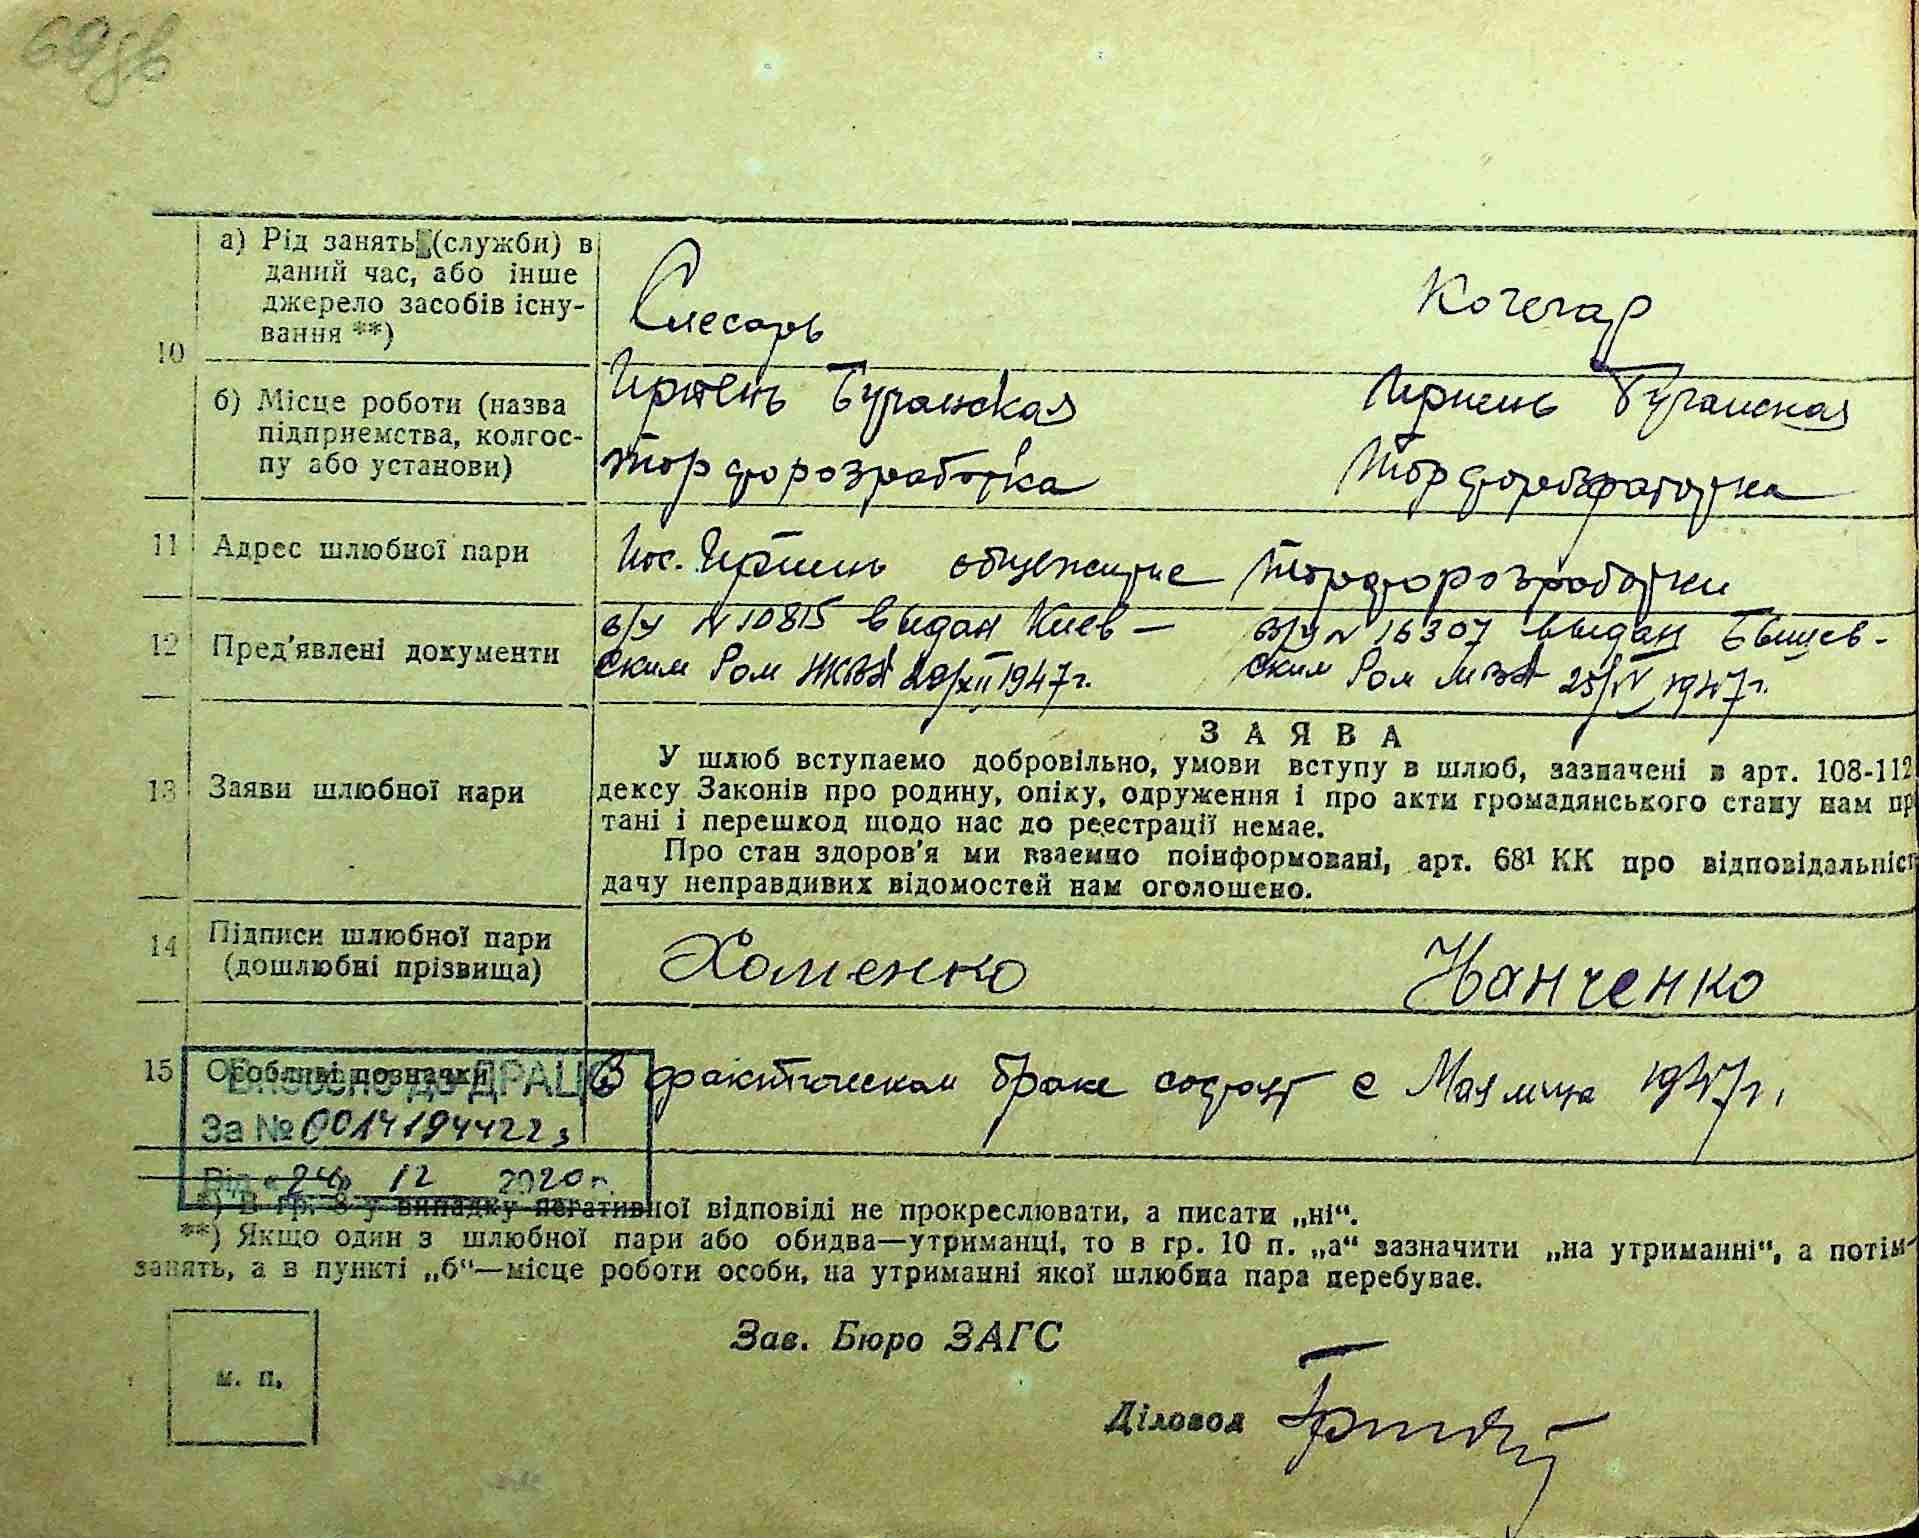 69зв
а) Рід занять (служби) в
даний час, або інше
джерело засобів існу-
вання **)
Слесарь
Кочегар
10
б) Місце роботи (назва
підприємства, колгос-
пу або установи)
Ирпень Бучанская
торфоразработка
Ирпень Бучанская
Торфоразработка
11 Адрес шлюбної пари
Пос. Ирпень общежитие Торфоразработки
12 Пред'явлені документи
в/у N 10815 выдан Киев-
ским Ром 20/XII 1947г.
в/у N 16307 выдан
ским Ром МВД 25/IV 1947г.
13 Заяви шлюбної пари
ЗАЯВА
У шлюб вступаємо добровільно, умови вступу в шлюб, зазначені в арт. 108-112
дексу Законів про родину, опіку, одруження і про акти громадянського стану нам пр
тані і перешкод щодо нас до реєстрації немає.
Про стан здоров'я ми взаємно поінформовані, арт. 68¹ КК про відповідальніст
дачу неправдивих відомостей нам оголошено.
14 Підписи шлюбної пари
(дошлюбні прізвища)
Хоменко
Иванченко
15 Особливі позначки
В фактическом браке состоят с Мая м-ца 1947г.
Внесено до ДРАЦС
За № 00141944223
Від «24» 12 2020 г.
*) В гр. 8 у випадку негативної відповіді не прокреслювати, а писати „ні“.
**) Якщо один з шлюбної пари або обидва—утриманці, то в гр. 10 п. „а“ зазначити „на утриманні“, а потім
занять, а в пункті „б“—місце роботи особи, на утриманні якої шлюбна пара перебуває.
Зав. Бюро ЗАГС
м. п.
Діловод